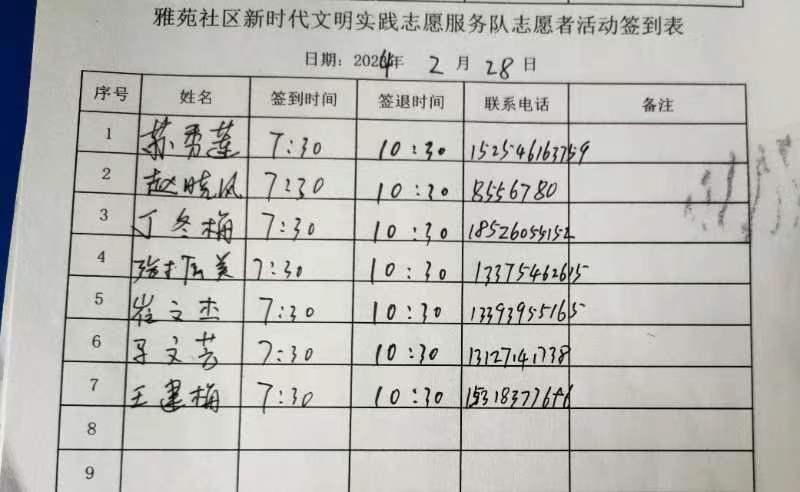 雅苑社区新时代文明实践志愿服务队志愿者活动签到表
日期：2024年 2 月 28 日
序号 姓名 签到时间 签退时间 联系电话 备注
1 苏秀莲 7:30 10:30 152546163759
2 赵晓风 7:30 10:30 8556780
3 丁冬梅 7:30 10:30 18526055152
4 美 7:30 10:30 13375462615
5 崔文杰 7:30 10:30 13393955165
6 文芳 7:30 10:30 13127141738
7 王建梅 7:30 10:30
8
9